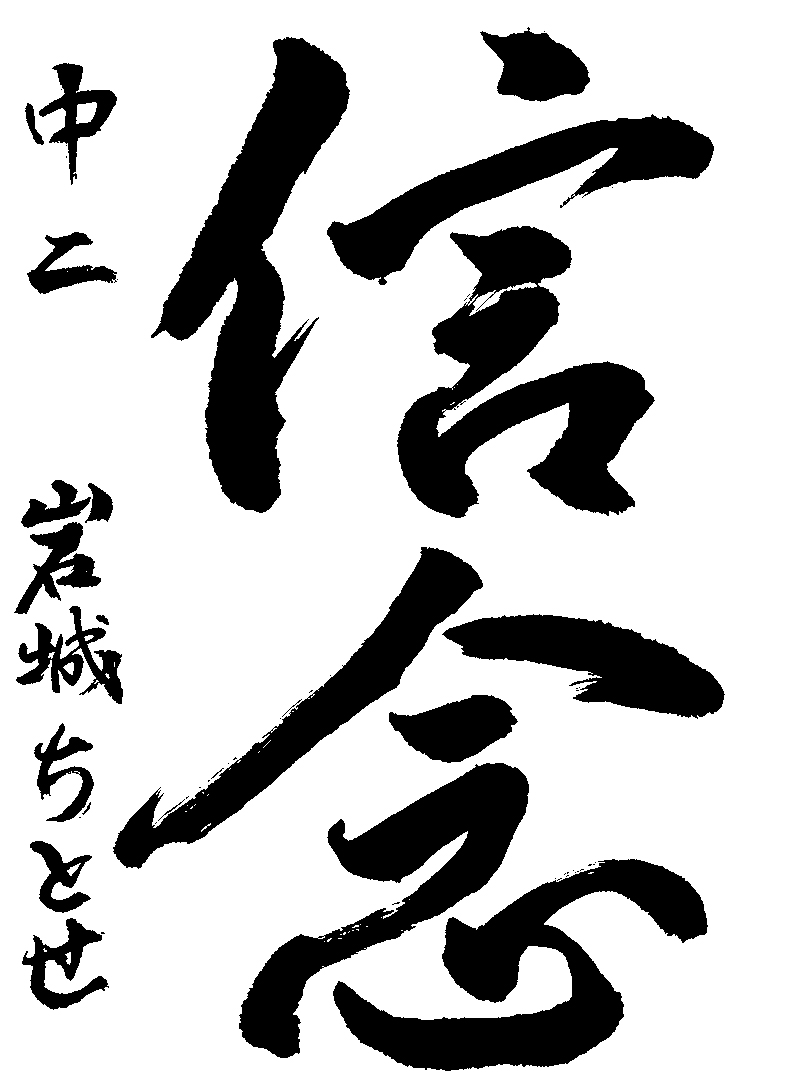 信念
中二 岩城ちとせ